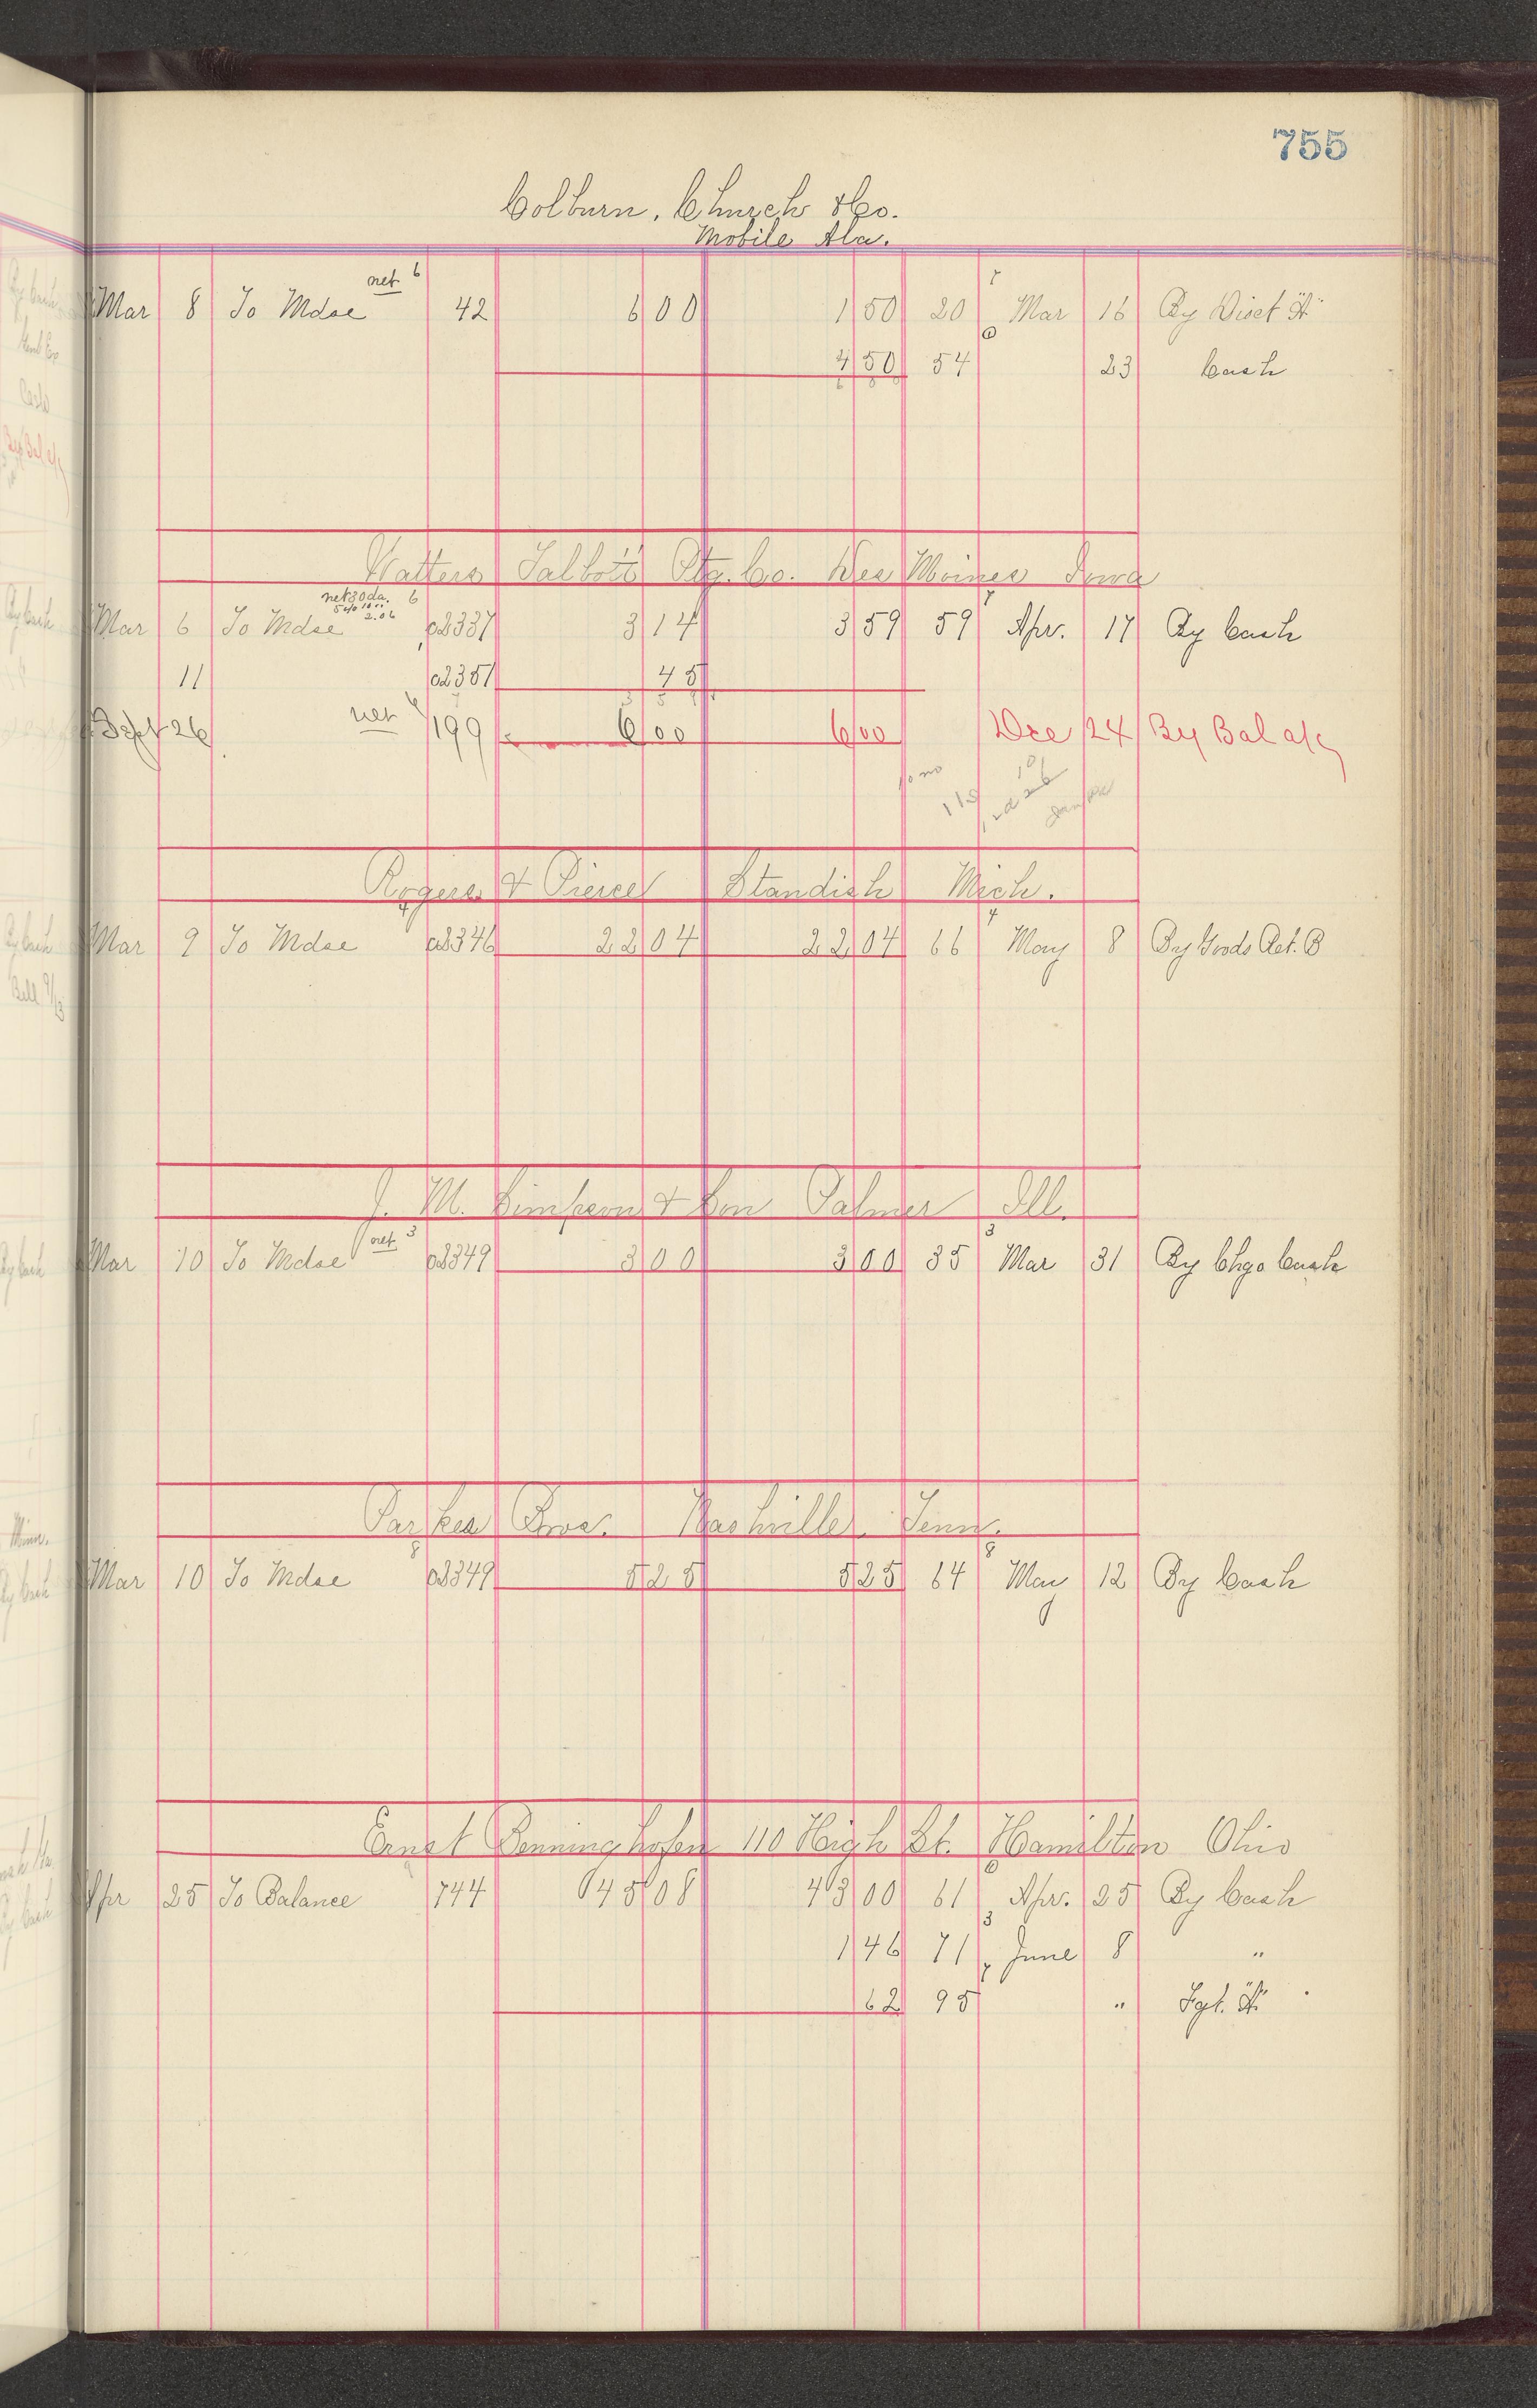 755
Colburn, Church & Co.
Mobile Ala.
net 6
Mar 8 To Mdse 42 6 00 1 50 20 Mar 16 By Disct
4 50 54 23 Cash
Watters Talbott Ptg. Co. Des Moines Iowa
net 30 da. 6
5 c/o 10
2.06
Mar 6 To Mdse 2337 3 14 3 59 59 Apr. 17 By Cash
11 2351 45
Sept 26 net 199 6 00 6 00 Dec 24 By Bal a/c
Rogers & Pierce Standish Mich.
Mar 9 To Mdse 2346 22 04 22 04 66 May 8 By Goods Ret. B
J. M. Simpson & Son Palmer Ill.
net 3
Mar 10 To Mdse 2349 3 00 3 00 35 Mar 31 By Chgo Cash
Parkes Bros. Nashville Tenn.
Mar 10 To Mdse 2349 5 25 5 25 64 May 12 By Cash
Ernst Benninghofen 110 High St. Hamilton Ohio
Apr 25 To Balance 744 45 08 43 00 61 Apr. 25 By Cash
1 46 71 June 8 "
62 95 " Fgt.